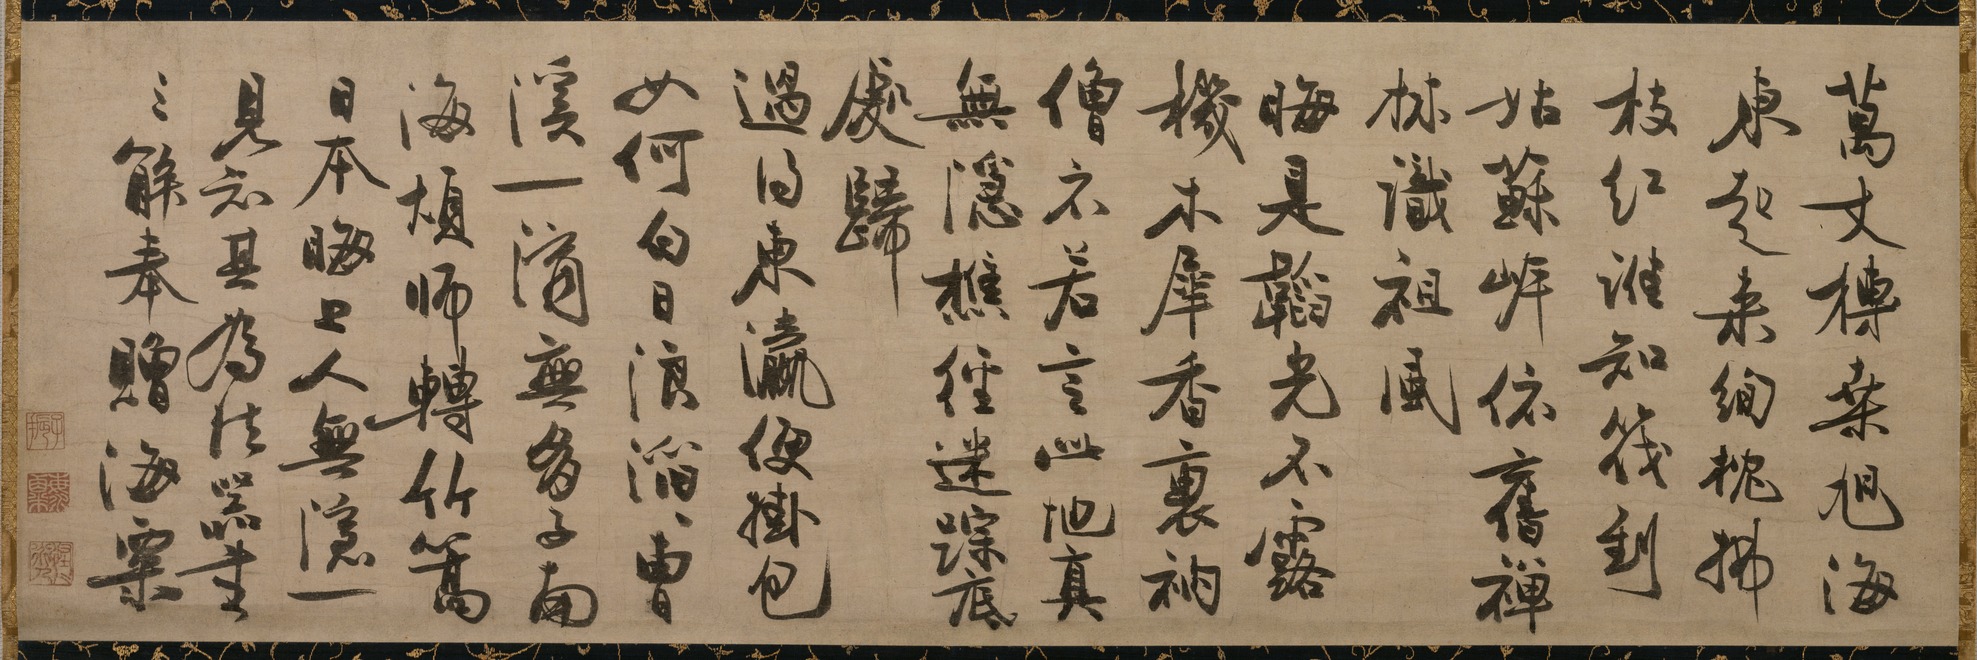 萬丈榑桒旭海
東起来絢桅拂
枝紅誰知筏到
姑蘇岸依舊禅
林識祖風
晦是韜光不露
機木犀香裏衲
僧衣若言此地真
無隱樵徑迷踪底
處歸
過得東瀛便掛包
如何白日浪滔〻曹
溪一滴無多子南
海煩師轉竹篙
日本晦上人無隱一
見知其為法器書
三解奉贈海粟